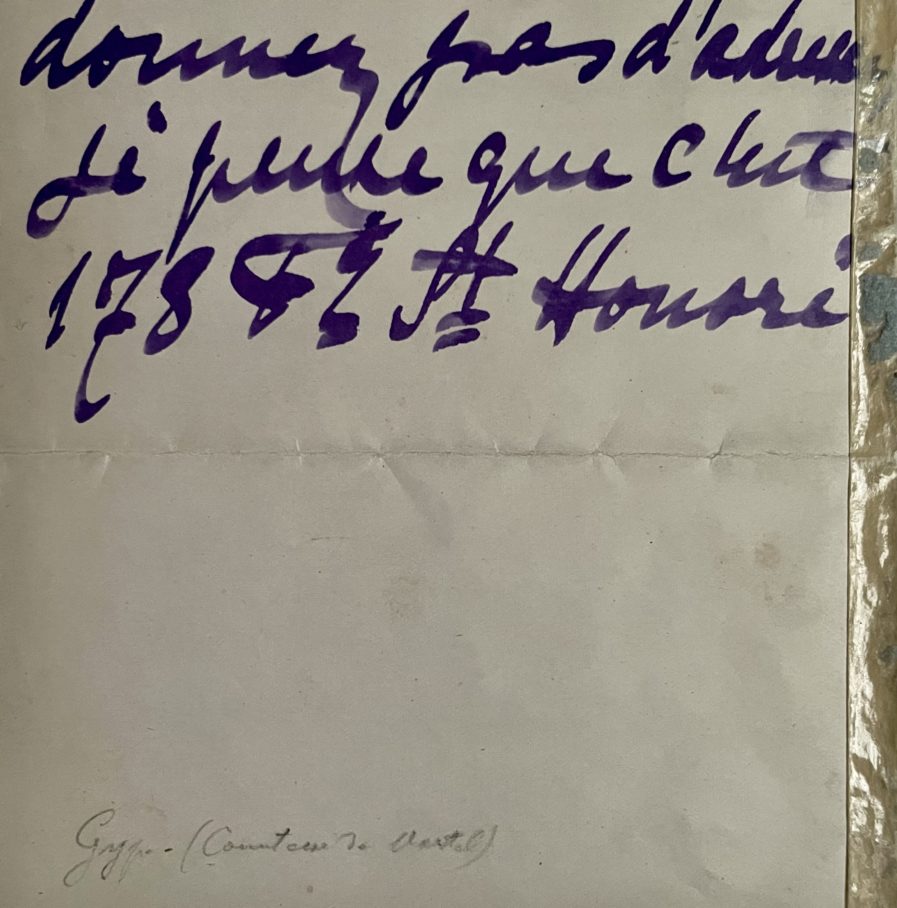 donnez pas d'adresse
je pense que c'est
178 Fg St Honoré
Gyp. - (Comtesse de Martel)